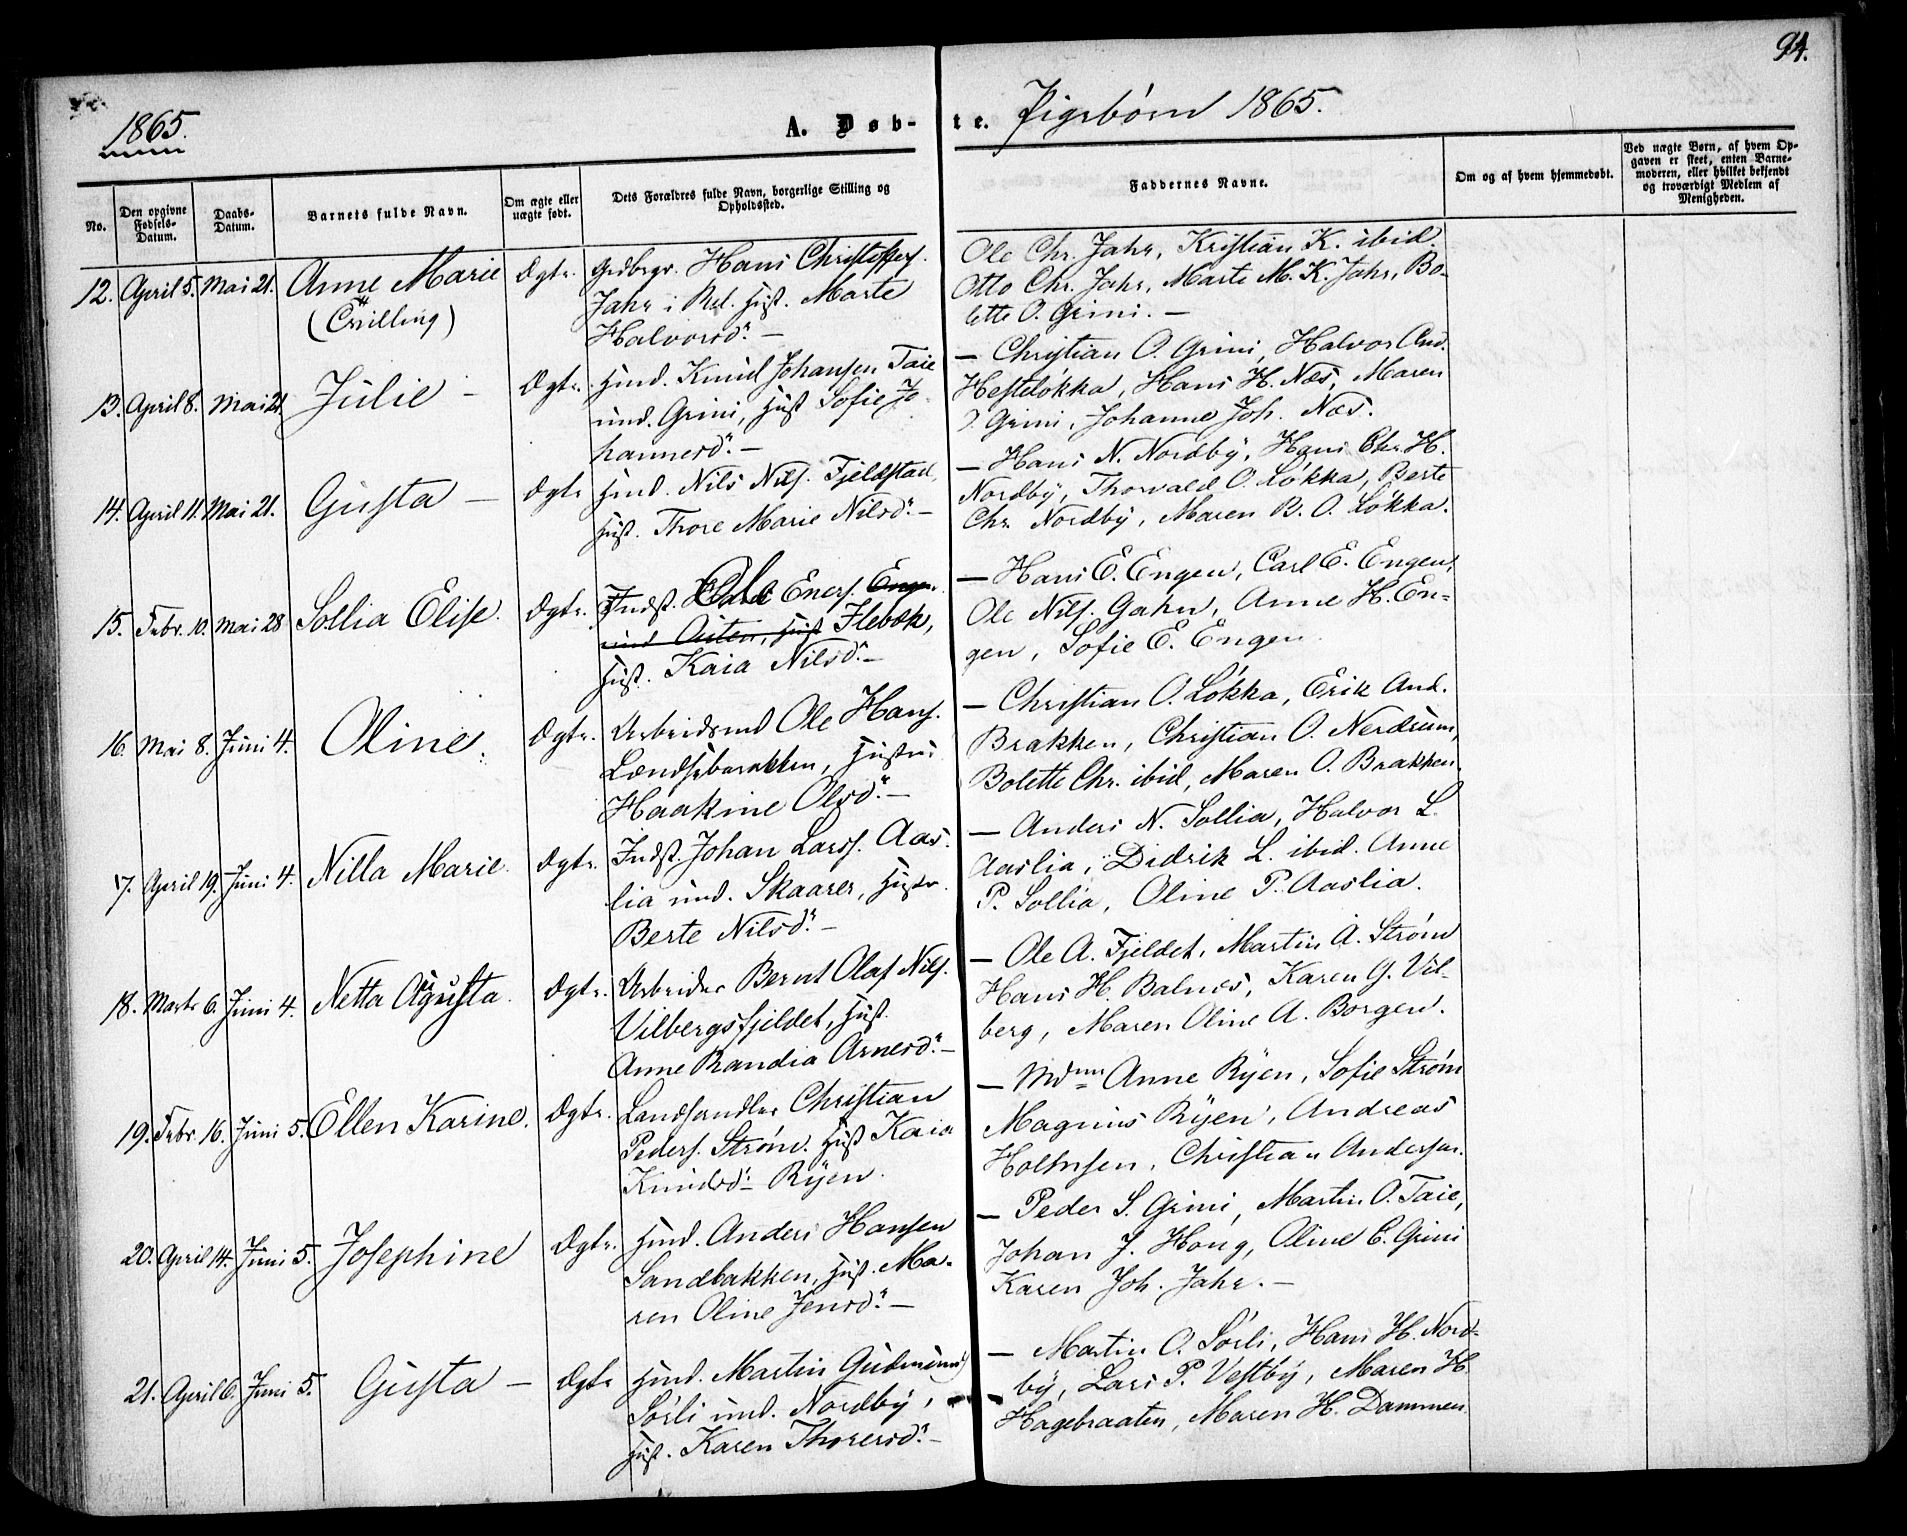 94.
1865.
A. Døb-
te. Pigebørn 1865.
No.
Den opgivne Fødsels-Datum.
Daabs-Datum.
Barnets fulde Navn.
Om ægte eller uægte født.
Dets Forældres fulde Navn, borgerlige Stilling og Opholdssted.
Faddernes Navne.
Om og af hvem hjemmedøbt.
Ved uægte Børn, af hvem Opgaven er skeet, enten Barnemoderen, eller hvilket bekjendt og troværdigt Medlem af Menigheden.
12. April 5. Mai 21. Anne Marie Ægte. Grdbrgr. Hans Christoffers.
(Tvilling) Jahr i Rul. Hust. Marte
Halvorsd: —
Ole Chr. Jahr, Kristian K. ibid.
Otto Chr. Jahr, Marte M. K. Jahr, Bo-
lette O. Grini. —
13. April 8. Mai 21 Julie — Ægte. Husmd. Knud Johansen Taie
und. Grini, Hust Sofie Jo-
hannesd: —
— Christian O. Grini, Halvor And.
Hesteløkka, Hans H. Næs, Maren
J Grini, Johanne Joh. Næs.
14. April 11. Mai 21. Gusta — Ægte Husmd. Nils Nils. Fjeldstad,
Hust. Thore Marie Nilsd: —
— Hans N. Nordby, Hans Chr. H.
Nordby, Thorvald O. Løkka, Berte
Chr. Nordby, Maren B. O. Løkka.
15. Febr. 10. Mai 28 Sollia Elise. Ægte. Indst. Carl Eners. Engen
und Auten, Hust Flebæk,
Hust. Kaia Nilsd: —
— Hans E. Engen, Carl E. Engen,
Ole Nils. Gahn, Anne H. En-
gen, Sofie E. Engen.
16. Mai 8. Juni 4. Oline. Ægte. Arbeidsmd Ole Hans.
Lændsebarakken, Hustru
Haakine Olsd: —
— Christian O. Løkka, Erik And.
Brakken, Christian O. Nerdrum,
Bolette Chr. ibid, Maren O. Brakken.
17. April 19. Juni 4. Nilla Marie. Ægte. Indst. Johan Larss. Aas-
lia und. Skaarer, Hustr.
Berte Nilsd: —
— Anders N. Sollia, Halvor L.
Aaslia, Didrik L. ibid. Anne
P. Sollia, Oline P. Aaslia.
18. Marts 6. Juni 4. Netta Agusta. Ægte. Arbeider Bernt Olaf Nils.
Vilbergsfjeldet, Hust.
Anne Randia Arnesd: —
— Ole A. Fjeldet, Martin A. Strøm
Hans H. Balnes, Karen G. Vil-
berg, Maren Oline A. Borgen.
19. Febr. 16. Juni 5. Ellen Karine. Ægte. Landhandler Christian
Peders. Strøm. Hust Kaia
Knudsd: Ryen.
— Mdm Anne Ryen, Sofie Strøm
Magnus Ryen, Andreas
Holmsen, Christian Andersen.
20. April 14. Juni 5. Josephine Ægte. Husmd. Anders Hansen
Sandbakken, Hust. Ma-
ren Oline Jensd: —
— Peder S. Grini, Martin O. Taie,
Johan J. Haug, Oline C. Grini
Karen Joh. Jahr. —
21. April 6. Juni 5. Gusta — Ægte Husmd. Martin Gudmunds
Sørli und. Nordby,
Hust. Karen Thoresd: —
— Martin O. Sørli, Hans H. Nord-
by, Lars P. Vestby, Maren H.
Hagebraaten, Maren H. Dammen